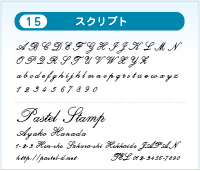 15 スクリプト
A B C D E F G H I J K L M N
O P Q R S T U V W X Y Z
a b c d e f g h i j k l m n o p q r s t u v w x y z
1 2 3 4 5 6 7 8 9 0
Pastel Stamp
Ayako Hanada
1-2-3 Hon-cho Sakura-shi Hokkaido JAPAN
http://pastel-d.net TEL 012-3456-7890